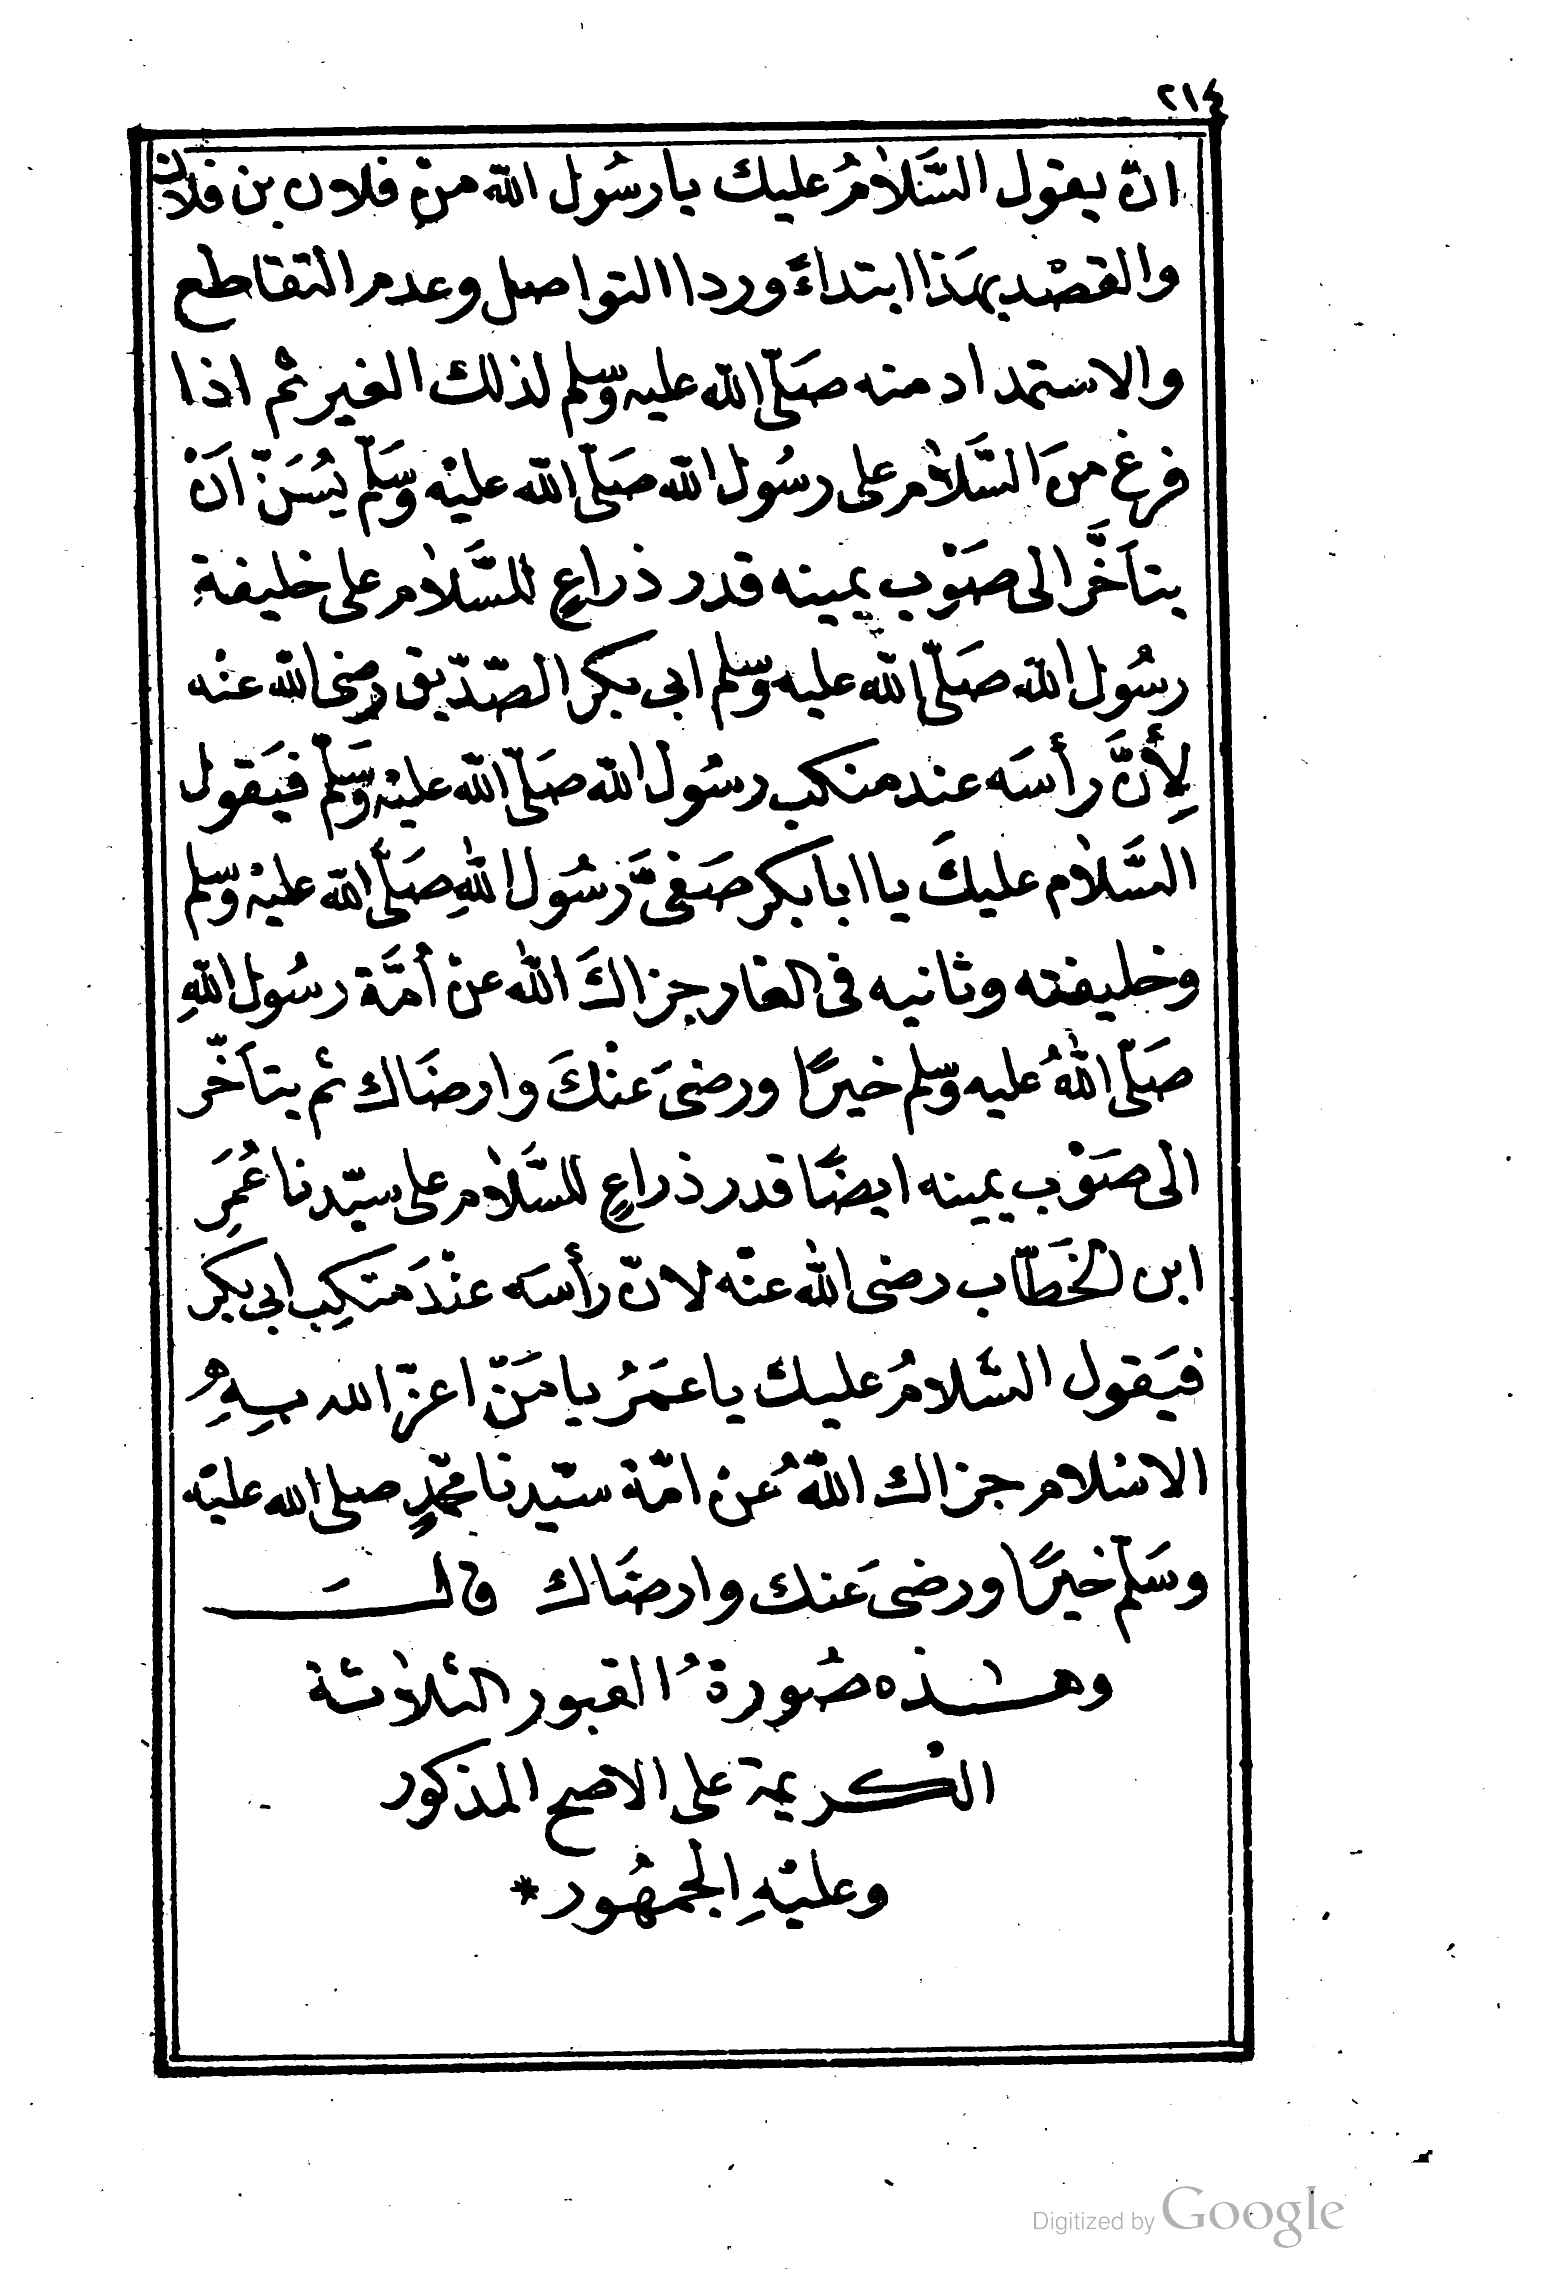 ٢١٤
انْ يقول السَّلامُ عليك يا رسُول الله منْ فلان بن فلان
والقصْد بهَذا ابتداءً وردا التواصل وعدم التقاطع
والاستمداد منه صَلّى الله عليه وسلم لذلك الغير ثم اذا
فرغ منَ السَّلام على رسُول الله صَلّى الله عليْه وَسَلّم يُسَنّ انْ
يتأخَّر الى صَوْب يمينه قدر ذراعٍ للسَّلام على خليفةِ
رسُول الله صَلّى الله عليه وسلم ابى بكر الصّدّيق رضى الله عنْه
لِأَنَّ رأسَه عند منكب رسُول الله صَلّى الله عليْه وَسَلّم فيَقول
السَّلام عليكَ يا ابا بكر صَفىَّ رسُول اللهِ صَلَّى الله عليْه وسلم
وخليفته وثانيه فى الغار جزاكَ الله عنْ أمَّة رسُول اللهِ
صَلّى اللهُ عليه وسلم خيرًا ورضىَ عنْكَ وارضَاك ثم يتأخّر
الى صَوْب يمينه ايضًا قدر ذراعٍ للسَّلام على سيّدنا عُمَرِ
ابن الخَطّاب رضى الله عنْه لانّ رأسَه عنْدَ منكِب ابى بكر
فيَقول السَّلامُ عليك يا عمَرُ يا مَنْ اعزّ الله بِهِ
الاسْلام جزاك اللهُ عنْ امّة سيّدنا محمّدٍ صلى الله عليْه
وسَلّم خيرًا ورضىَ عنك وارضَاك قالـــَ
وهٰذه صُورةُ القبور الثلاثة
الكريمة على الاصح المذكور
وعليْهِ الجمهُور *
Digitized by Google